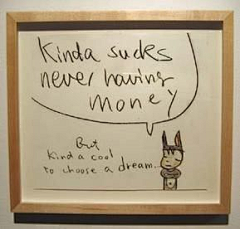 Kinda sucks
never having
money
But
kind a cool
to choose a dream...